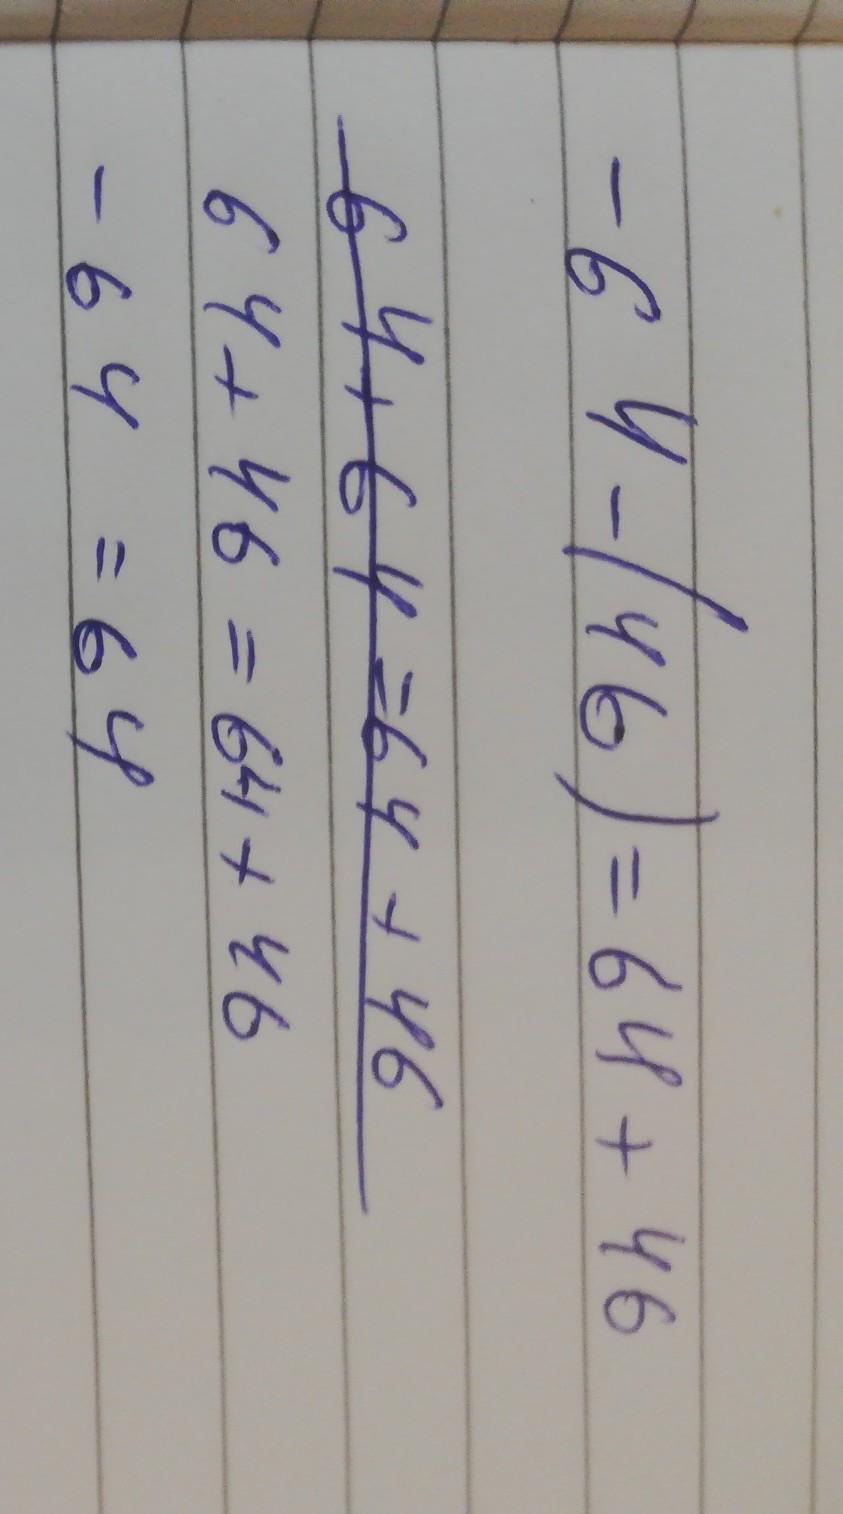 - 6 4 - (46) = 64 + 46
64 + 64 = 64 + 46
64 + 46 = 64 + 46
- 64 = 64